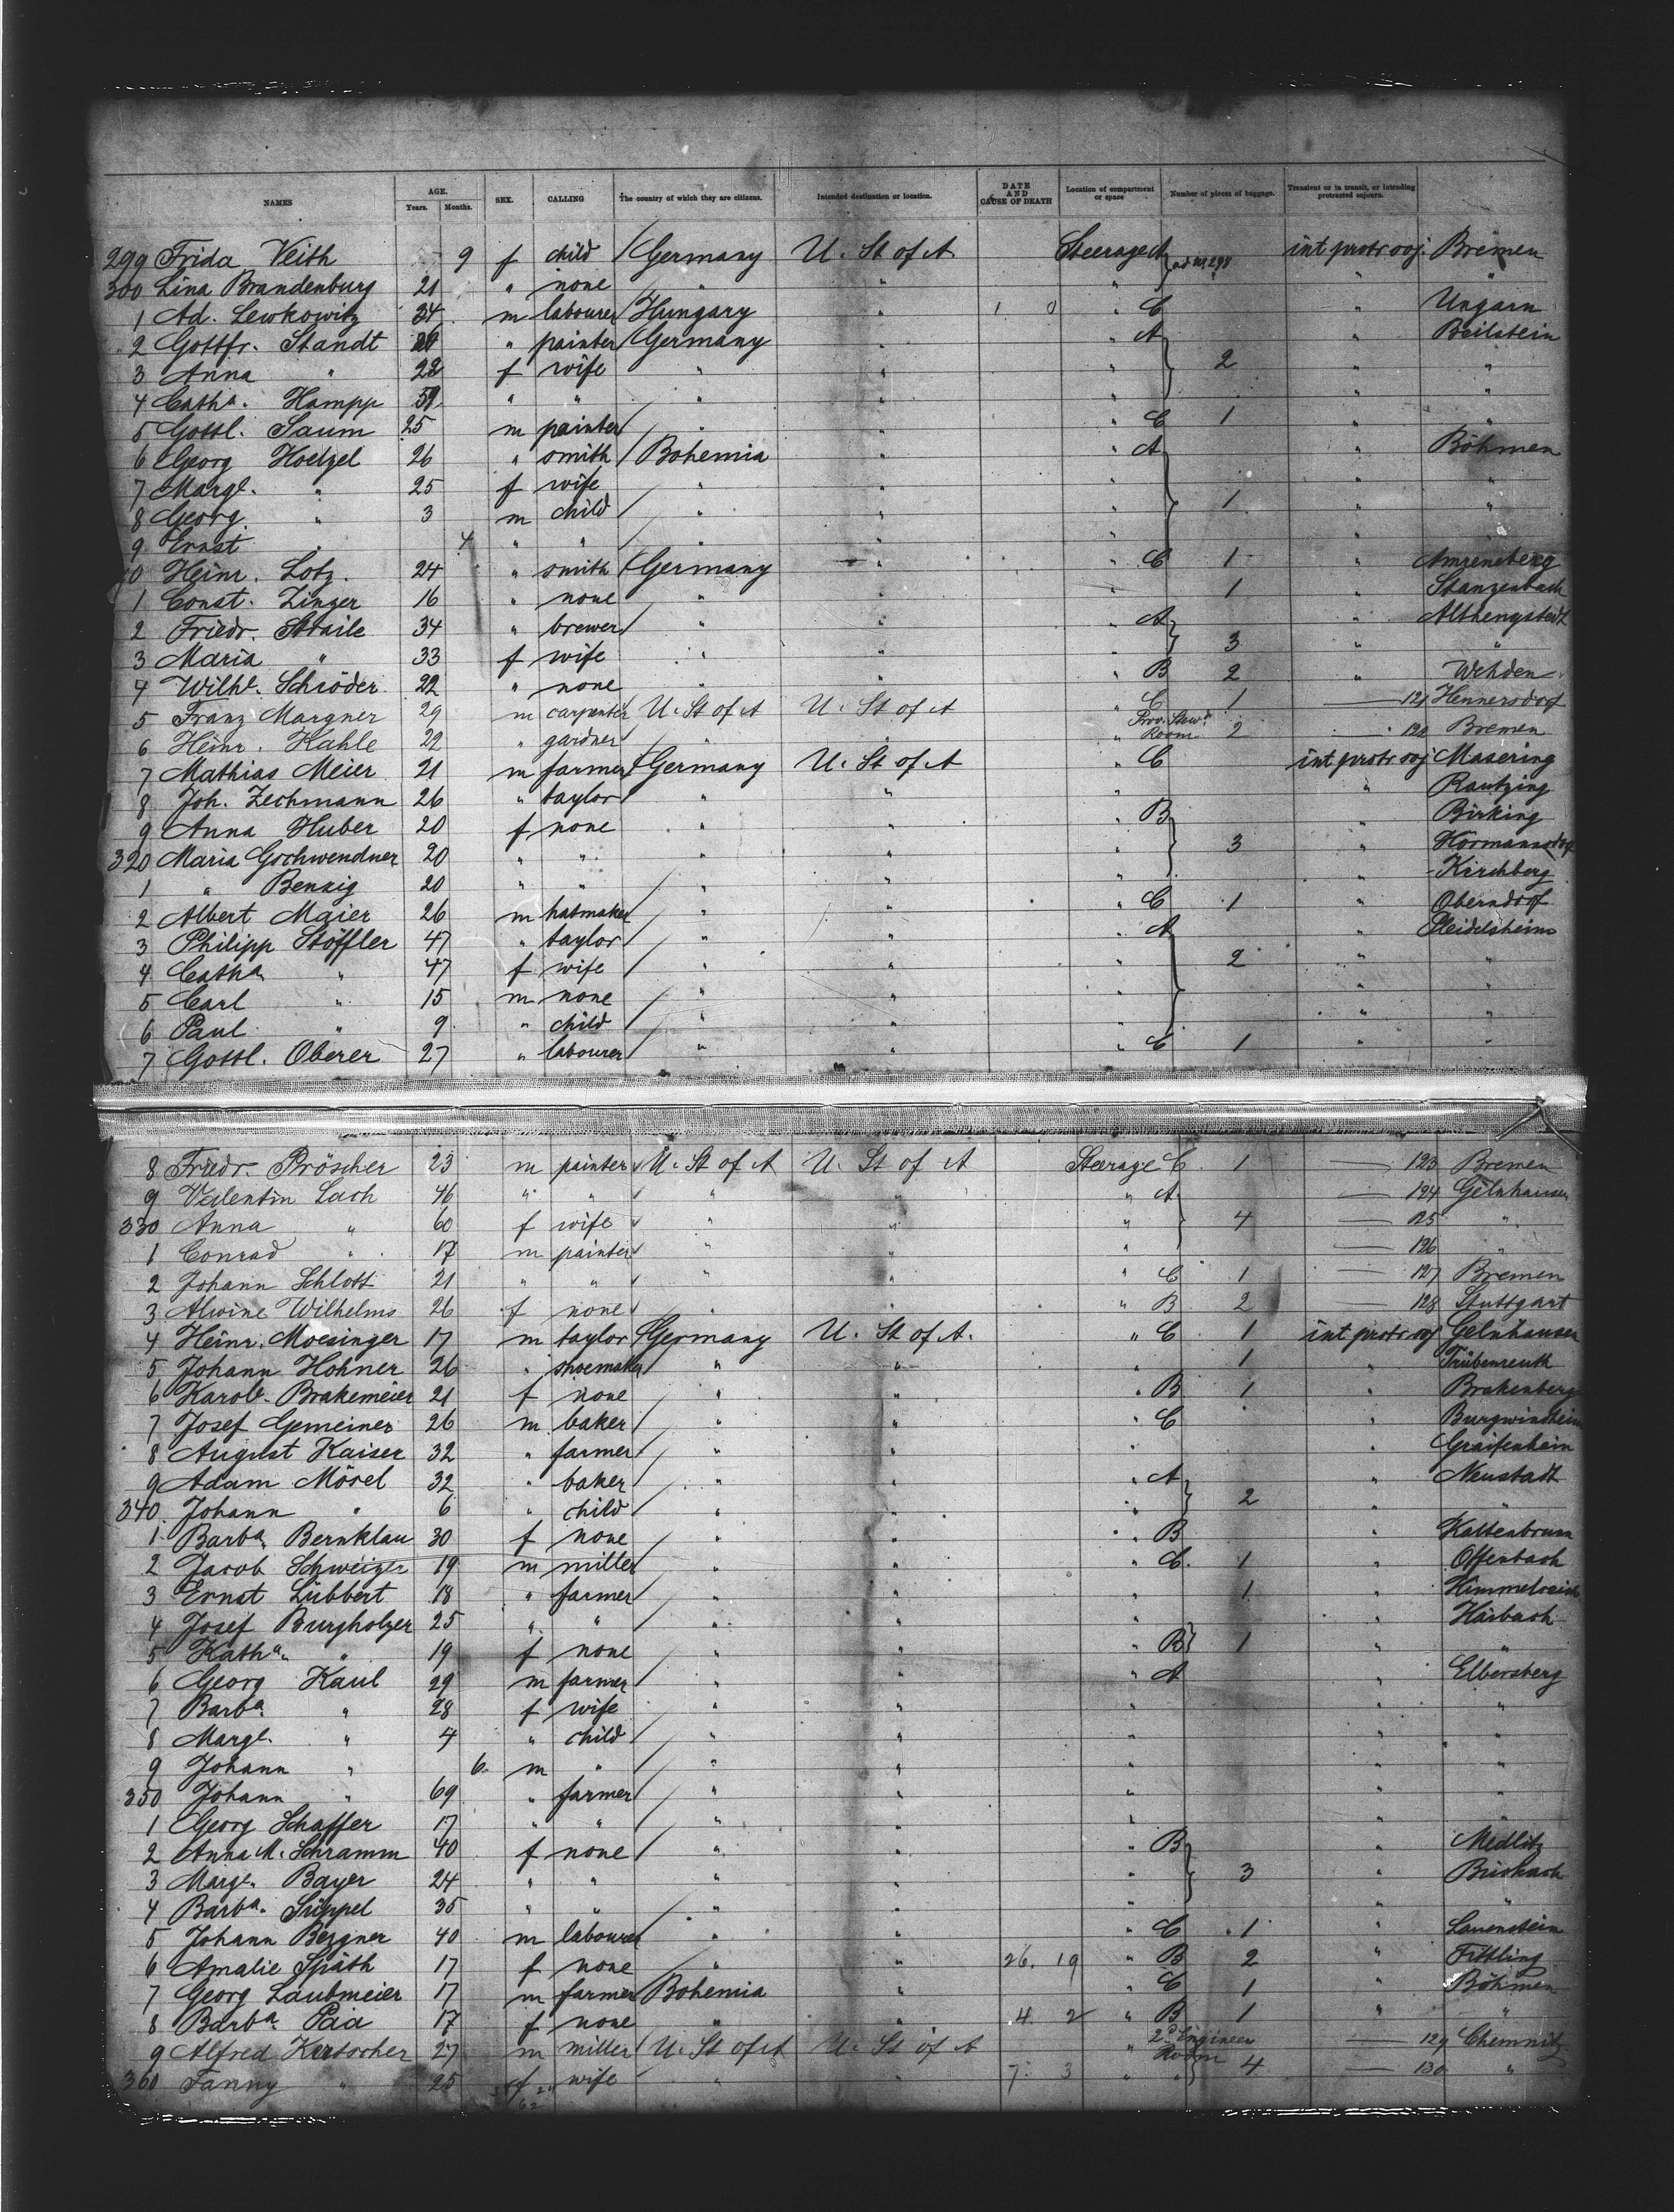 NAMES AGE. Years. Months. SEX. CALLING The country of which they are citizens. Intended destination or location. DATE AND CAUSE OF DEATH Location of compartment or space Number of pieces of baggage. Transient or in transit, or intending protracted sojourn.
299 Frida Veith 9 f child Germany U. St of A Steerage A ad No 298 int protr soj. Bremen
300 Lina Brandenburg 21 " none " " " " "
1 Ad. Lewkowitz 34 m labourer Hungary " 1 0 " C " Ungarn
2 Gottfr. Standt " painter Germany " " A " Beilstein
3 Anna " 28 f wife " " " 2 " "
4 Catha. Hampp 59 " " " " " " "
5 Gottl. Saum 25 m painter " " " C 1 " "
6 Georg Hoelzel 26 " smith Bohemia " " A " Böhmen
7 Margt. " 25 f wife " " " " "
8 Georg " 3 m child " " " 1 " "
9 Ernst " 4 " " " " " " "
10 Heinr. Lotz. 24 " smith Germany " " C 1 "
1 Const. Zinger 16 " none " " " 1 " Stanzenbach
2 Friedr. Straile 34 " brewer " " " A " Althengstedt
3 Maria " 33 f wife " " " 3 " "
4 Wilhe. Schröder 22 " none " " " B 2 " Wehden
5 Franz Margner 29 m carpenter U. St of A U. St of A " C 1 — 121 Hennersdorf
6 Heinr. Kahle 22 " gardner " " " Prov. Stewd. Room 2 — 122 Bremen
7 Mathias Meier 21 m farmer Germany U. St of A " C int protr soj Masering
8 Joh. Zechmann 26 " taylor " " " " Rautzing
9 Anna Huber 20 f none " " " B " Birking
320 Maria Gschwendner 20 " " " " " 3 " Hörmannsdorf
1 " Benzig 20 " " " " " " Kirchberg
2 Albert Maier 26 m hatmaker " " " C 1 " Oberndorf
3 Philipp Stöffler 47 " taylor " " " A " Pleidelsheim
4 Catha " 47 f wife " " " 2 " "
5 Carl " 15 m none " " " " "
6 Paul " 9 " child " " " " "
7 Gottl. Oberer 27 " labourer " " " C 1 " "
8 Friedr. Pröscher 23 m painter U. St of A U. St of A Steerage C. 1 — 123 Bremen
9 Valentin Lach 46 " " " " " A — 124 Gelnhausen
330 Anna " 60 f wife " " " 4 — 125 "
1 Conrad " 17 m painter " " " — 126 "
2 Johann Schlott 21 " " " " " C 1 — 127 Bremen
3 Alwine Wilhelms 26 f none " " " B 2 — 128 Stuttgart
4 Heinr. Moesinger 17 m taylor Germany U. St of A. " C 1 int protr soj Gelnhausen
5 Johann Hohner 26 " shoemaker " " " 1 " Trübenreuth
6 Karole. Brakemeier 21 f none " " " B 1 " Brakenberg
7 Josef Gemeiner 26 m baker " " " C " Burgwindheim
8 August Kaiser 32 " farmer " " " " Graifenhein
9 Adam Mörel 32 " baker " " " A " Neustadt
340 Johann " 6 " child " " " 2 " "
1 Barba. Bernklau 30 f none " " " B " Kaltenbrunn
2 Jacob Schweizer 19 m miller " " " C. 1 " Offenbach
3 Ernst Lübbert 18 " farmer " " " 1 " Himmelreich
4 Josef Burgholzer 25 " " " " " " Harbach
5 Katha. " 19 f none " " " B 1 " "
6 Georg Kaul 29 m farmer " " " A " Elbersberg
7 Barba. " 28 f wife " " " " "
8 Margt. " 4 " child " " " " "
9 Johann " 6 m " " " " " "
350 Johann " 69 " farmer " " " " "
1 Georg Schaffer 17 " " " " " " "
2 Anna M. Schramm 40 f none " " " B " Medlitz
3 Margt. Bayer 24 " " " " " 3 "
4 Barba. Süppel 35 " " " " " " "
5 Johann Bergner 40 m labourer " " " C 1 " Lauenstein
6 Amalie Späth 17 f none " " 26. 19 " B 2 " Tittling
7 Georg Laubmeier 17 m farmer Bohemia " " C 1 " Böhmen
8 Barba. Paa 17 f none " " 4 2 " B 1 " "
9 Alfred Kertscher 27 m miller U. St of A U. St of A " 2d Engineer Room — 129 Chemnitz
360 Fanny " 25 f wife " " 7. 3 " " 4 — 130 "